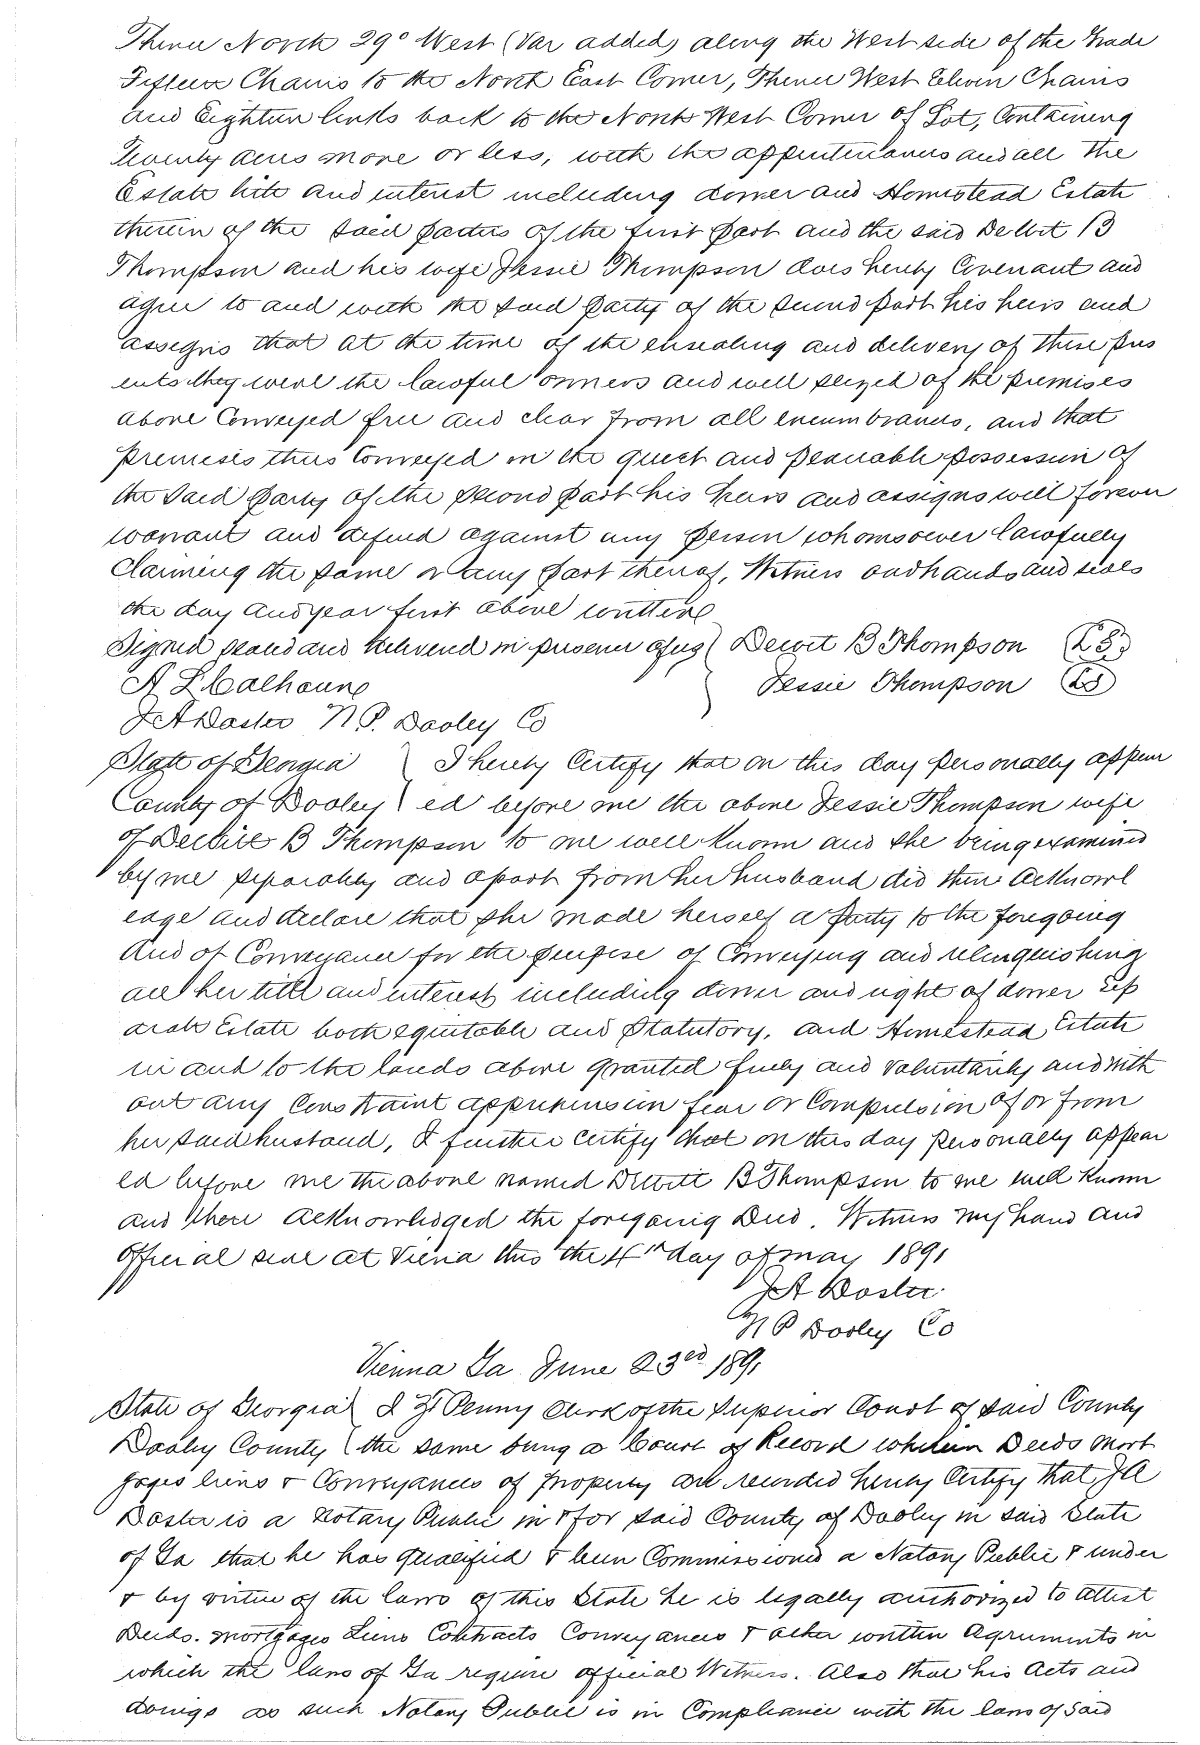 Thence North 29° West (Var added) along the West side of the Grade
Fifteen Chains to the North East Corner, Thence West Eleven Chains
and Eighteen links back to the North West Corner of Lot, Containing
Twenty acres more or less, with the appurtenances and all the
Estate title and interest including dower and Homestead Estate
therein of the said parties of the first part and the said Dewit B
Thompson and his wife Jessie Thompson does hereby Covenant and
agree to and with the said party of the second part his heirs and
assigns that at the time of the ensealing and delivery of these pres
ents they were the lawful owners and well seized of the premises
above Conveyed free and clear from all encumbrances, and that
premises thus Conveyed in the quiet and peaceable possession of
the said party of the second part his heirs and assigns will forever
warrant and defend against any person whomsoever lawfully
Claiming the same or any part thereof, Witness our hands and seals
the day and year first above written
Signed sealed and delivered in presence of us ( Dewit B Thompson (LS)
A L Calhoune Jessie Thompson (LS)
J A Daster N.P. Dooley Co
State of Georgia } I hereby Certify that on this day personally appear
County of Dooley } ed before me the above Jessie Thompson wife
of Dewitt B Thompson to me well known and she being examined
by me separately and apart from her husband did then acknowl
edge and declare that she made herself a party to the foregoing
deed of Conveyance for the purpose of Conveying and relinquishing
all her title and interest including dower and right of dower sep
arate Estate both equitable and Statutory, and Homestead Estate
in and to the lands above granted freely and voluntarily and with
out any constraint apprehension fear or Compulsion of or from
her said husband, I further certify that on this day personally appear
ed before me the above named Dewitt B Thompson to me well known
and there acknowledged the foregoing Deed. Witness my hand and
official seal at Viena this the 4th day of may 1891
J A Daster
N P Dooley Co
Vienna Ga June 23rd 1891
State of Georgia } I Penny Clerk of the Superior Court of said County
Dooly County } the same being a Court of Record wherein Deeds Mort
gages liens & Conveyances of property are recorded hereby Certify that J A
Daster is a Notary Public in & for said County of Dooly in said State
of Ga that he has qualified & been Commissioned a Notary Public & under
& by virtue of the laws of this State he is legally authorized to attest
Deeds. mortgages Liens Contracts Conveyances & other written agreements in
which the laws of Ga require official Witness. Also that his acts and
doings as such Notary Public is in Compliance with the laws of said